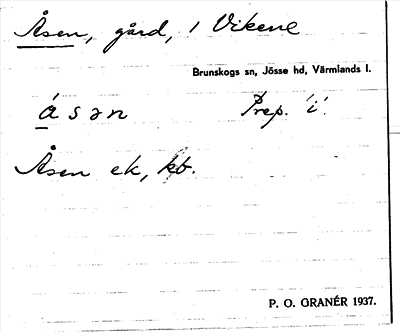 Åsen, gård, i Vikene
Brunskogs sn, Jösse hd, Värmlands l.
ásən Prep. 'i'.
Åsen ek, kb.
P. O. GRANÉR 1937.